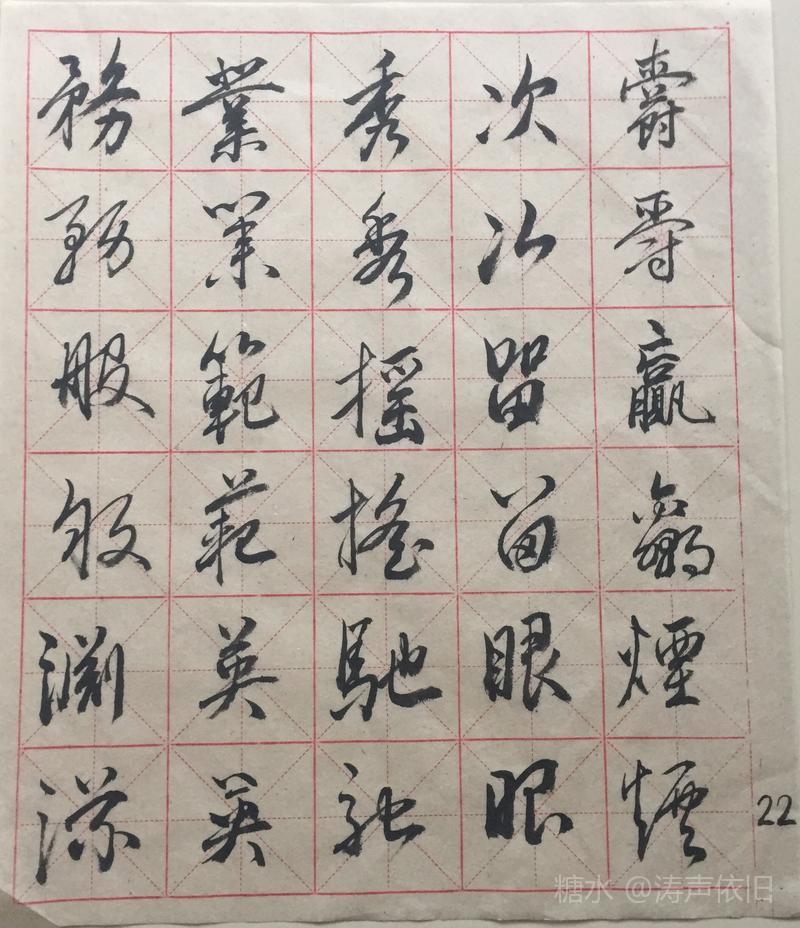 爵爵贏贏煙煙
次次留留眼眼
秀秀搖搖馳馳
業業範範英英
務務服服淵淵
22
糖水 @涛声依旧